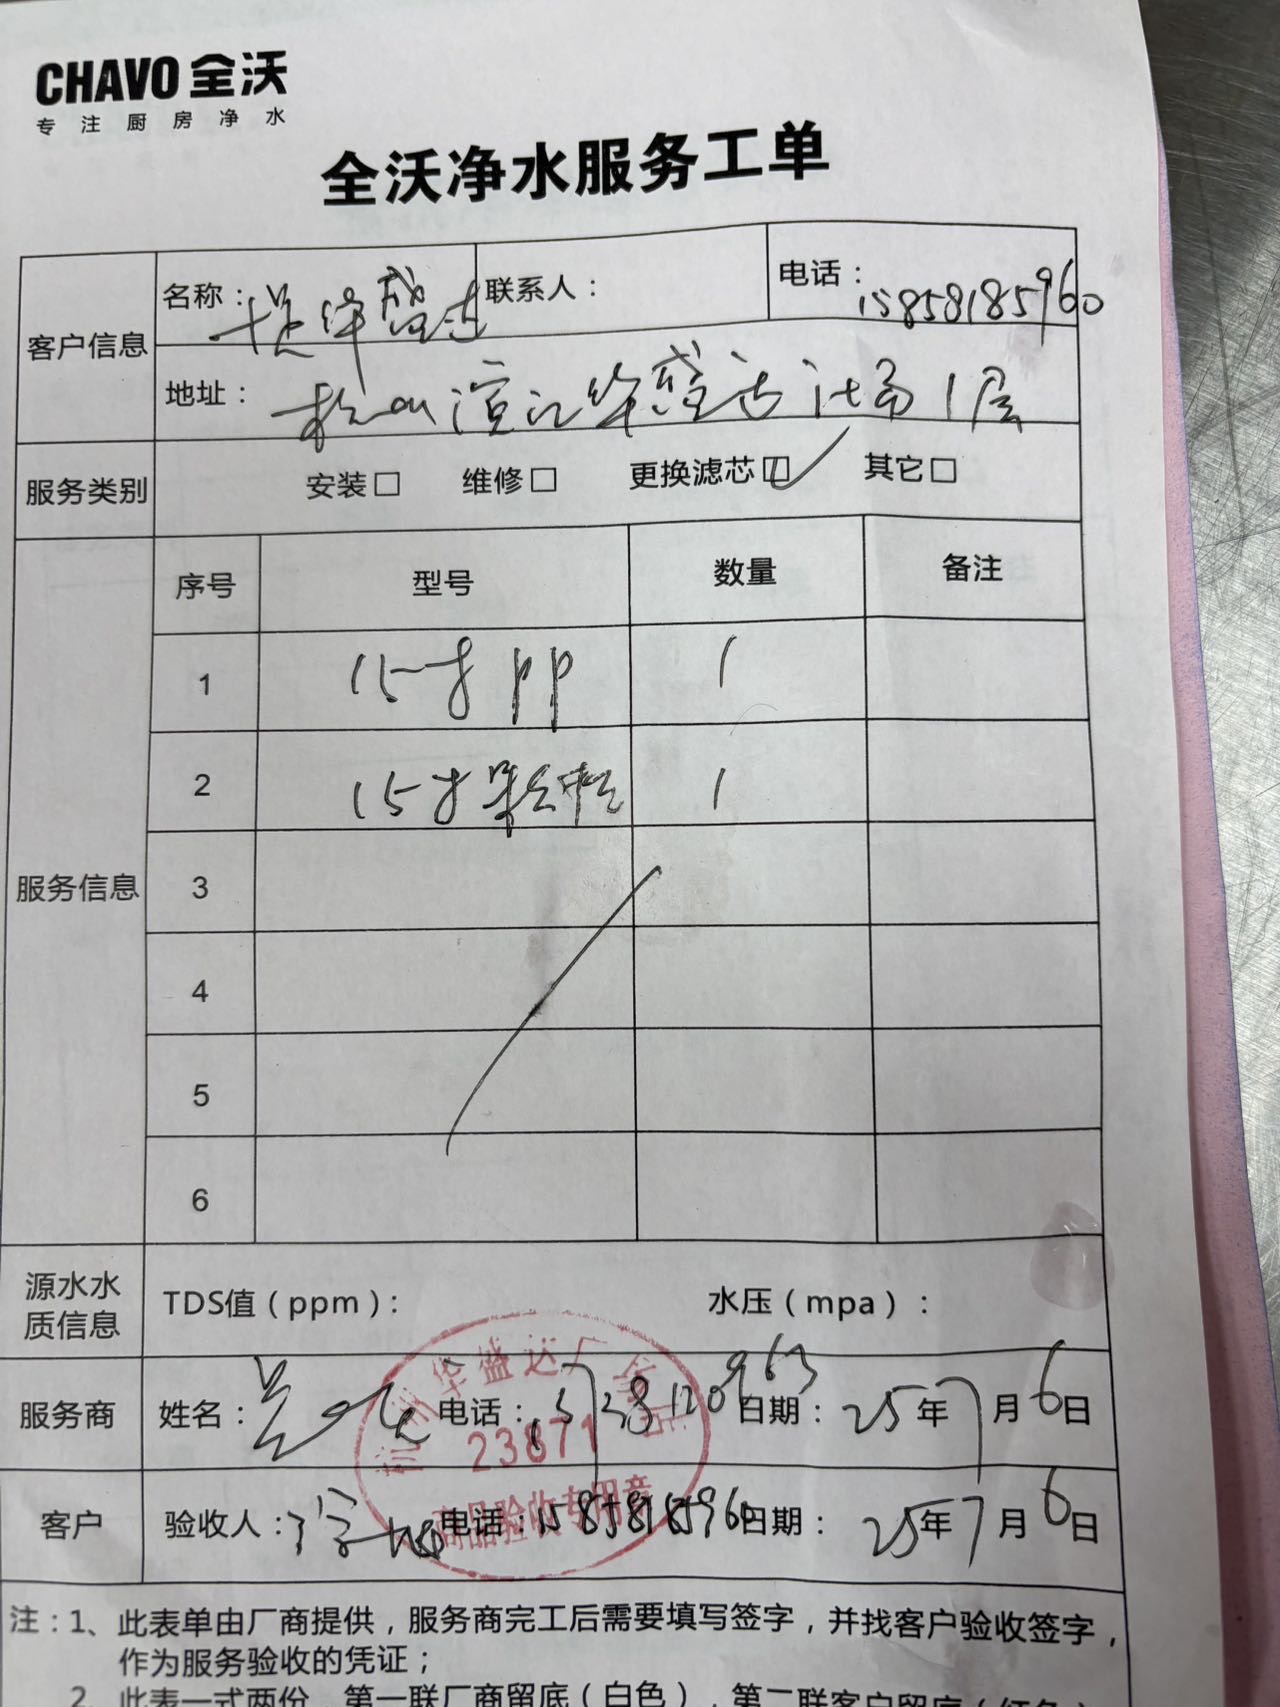 CHAVO 全沃
专注厨房净水
全沃净水服务工单
客户信息
名称：
联系人：
电话：15858185960
地址：杭州滨江华盛达 1层
服务类别
安装□ 维修□ 更换滤芯□✓ 其它□
服务信息
序号 型号 数量 备注
1 15寸PP 1
2 15寸 1
3
4
5
6
源水水质信息
TDS值（ppm）： 水压（mpa）：
服务商
姓名： 电话： 日期：25年7月6日
华盛达广
23871
商品验收专用章
客户
验收人： 电话：15858185960 日期：25年7月6日
注：1、此表单由厂商提供，服务商完工后需要填写签字，并找客户验收签字，
作为服务验收的凭证；
2、此表一式两份，第一联厂商留底（白色），第二联客户留底（红色）